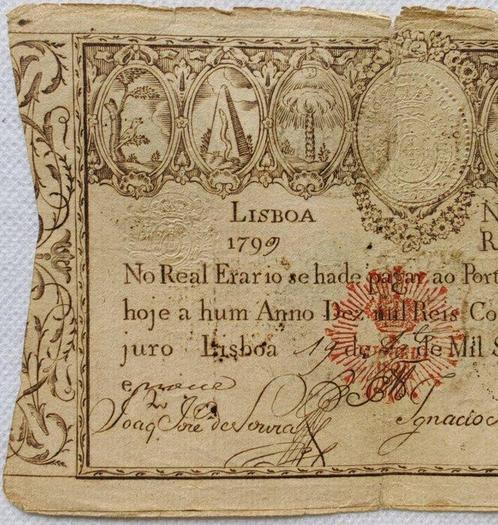 LISBOA N
1799 R
No Real Erario se hade pagar ao Port
hoje a hum Anno Dez mil Reis Co
juro Lisboa de de Mil S
Joaq Jose de Souza Ignacio